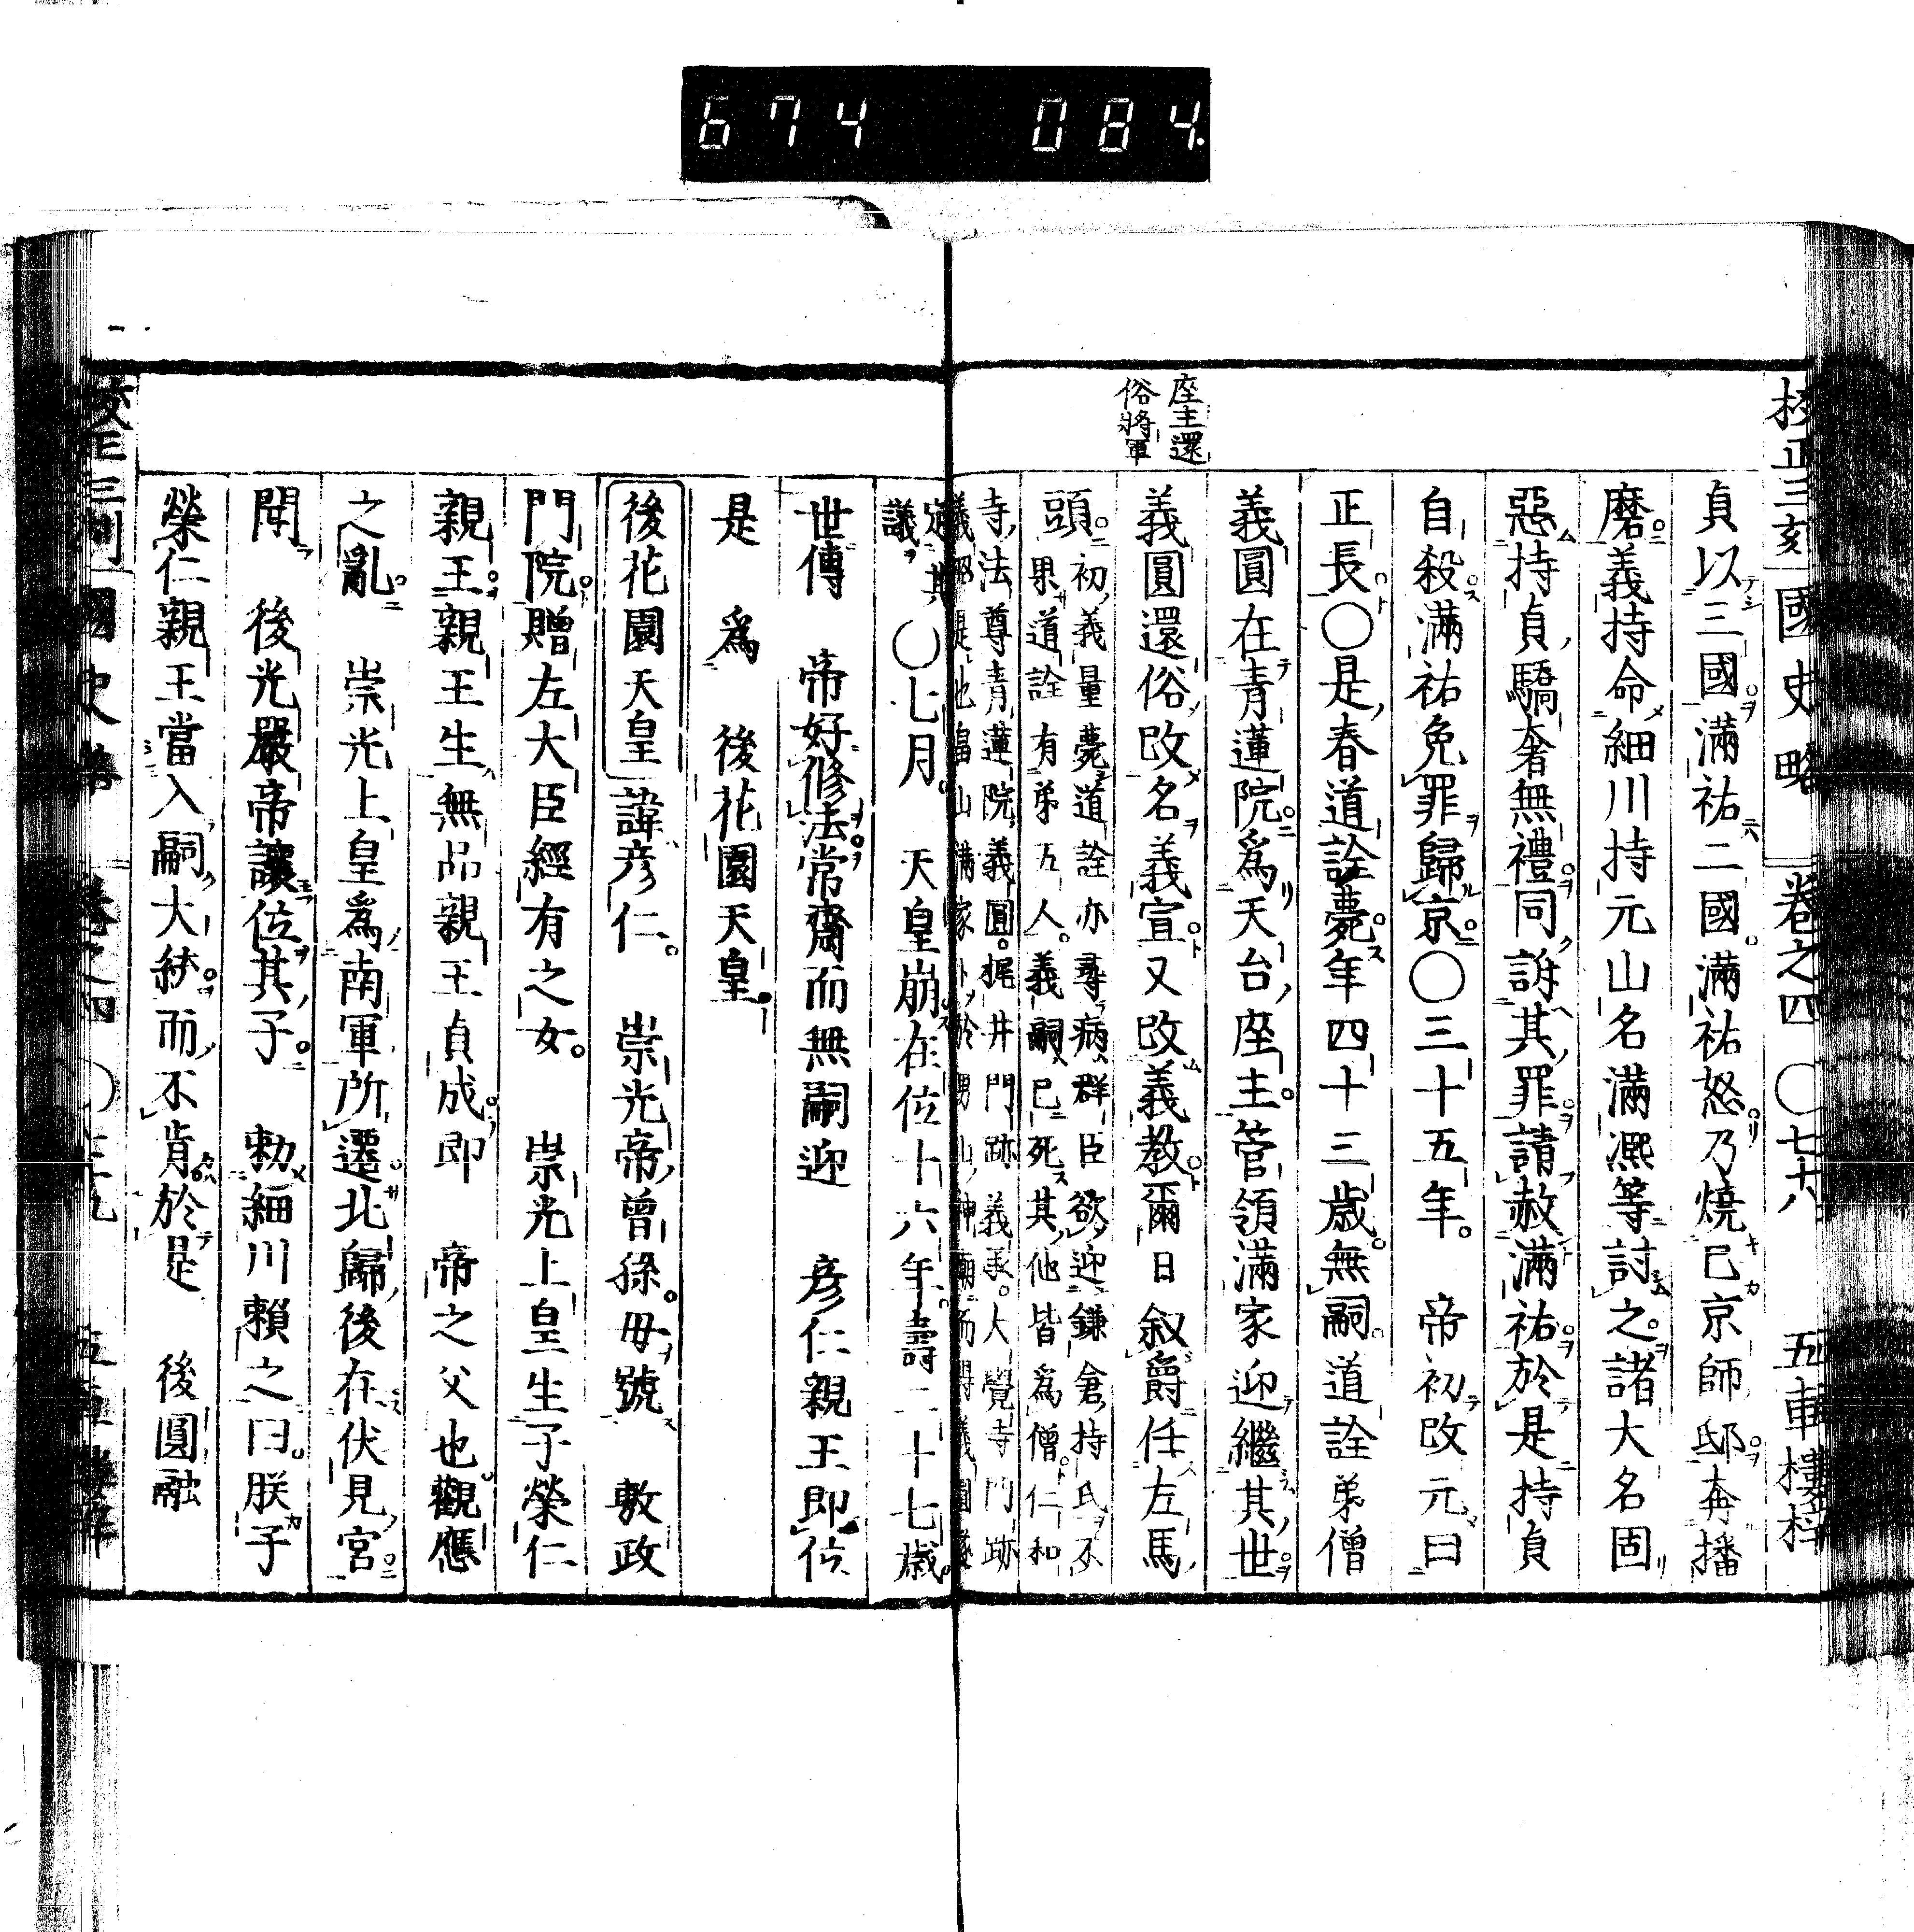 674 084
校正三刻 國史略 卷之四 〇七十八 五車樓梓
座主還
俗將軍
貞以三國滿祐二國滿祐怒乃燒已京師邸奔播
磨義持命細川持元山名滿凞等討之諸大名固
惡持貞驕奢無禮同訴其罪請赦滿祐於是持貞
自殺滿祐免罪歸京〇三十五年 帝初改元曰
正長〇是春道詮薨年四十三歲無嗣道詮弟僧
義圓在青蓮院爲天台座主管領滿家迎繼其世
義圓還俗改名義宣又改義教爾日叙爵任左馬
頭初義量薨道詮亦尋病群臣欲迎鎌倉持氏不
果道詮有弟五人義嗣已死其他皆為僧仁和
寺法尊青蓮院義圓梶井門跡義承大覺寺門跡
義昭是也畠山滿家卜於男山神廟而得義圓遂
定其
議〇七月 天皇崩在位十六年壽二十七歲
世傳 帝好修法常齋而無嗣迎 彦仁親王即位
是爲 後花園天皇
後花園天皇諱彦仁 崇光帝曾孫母號 敷政
門院贈左大臣經有之女 崇光上皇生子榮仁
親王親王生無品親王貞成即 帝之父也觀應
之亂 崇光上皇爲南軍所遷北歸後在伏見宮
聞 後光嚴帝讓位其子 勅細川賴之曰朕子
榮仁親王當入嗣大統而不肯於是 後圓融
國史